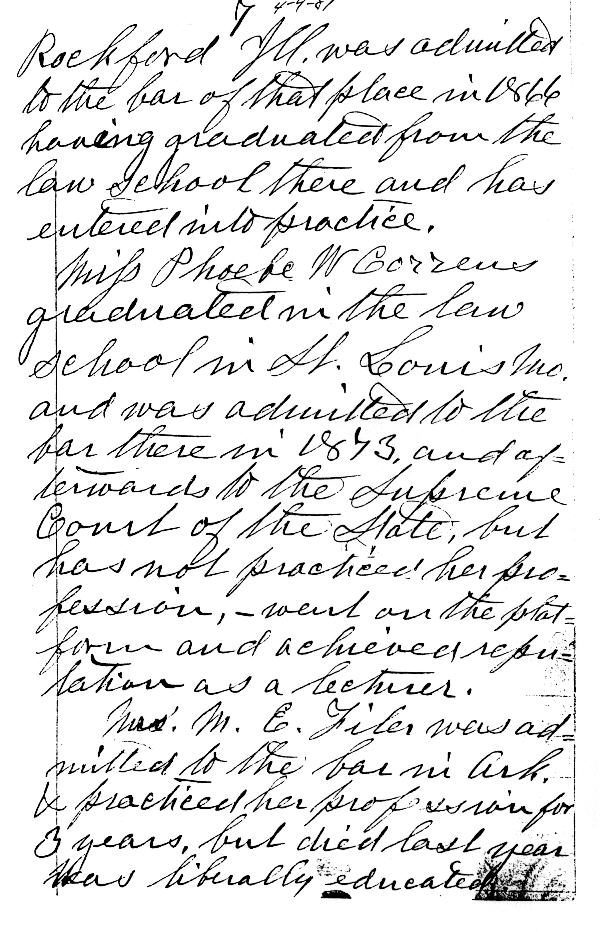 7 4-9-81
Rockford Ill. was admitted
to the bar of that place in 1866
having graduated from the
law school there and has
entered into practice.
Miss Phoebe W Cozzens
graduated in the law
school in St. Louis Mo.
and was admitted to the
bar there in 1873, and af=
terwards to the Supreme
Court of the State, but
has not practiced her pro=
fession, - went on the plat=
form and achieved repu=
tation as a lecturer.
Mrs. M. E. Filer was ad=
mitted to the bar in Ark.
& practiced her profession for
3 years, but died last year
Was liberally educated.